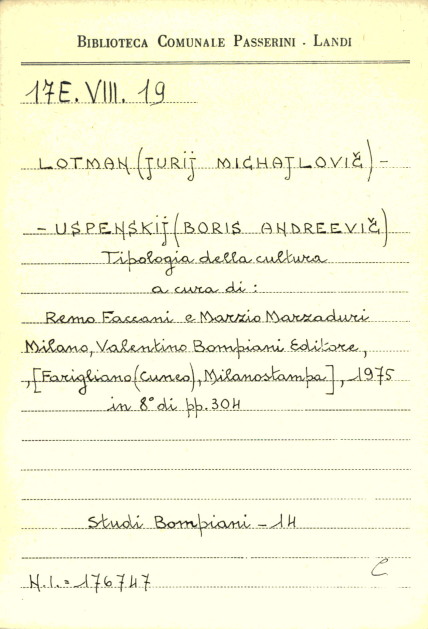 BIBLIOTECA COMUNALE PASSERINI - LANDI
17E. VIII. 19
LOTMAN (JURIJ MICHAJLOVIČ) -
- USPENSKIJ (BORIS ANDREEVIČ)
Tipologia della cultura
a cura di :
Remo Faccani e Marzio Marzaduri
Milano, Valentino Bompiani Editore,
,[Farigliano (Cuneo), Milanostampa], 1975
in 8° di pp. 304
Studi Bompiani - 14
C
N.I. = 176747